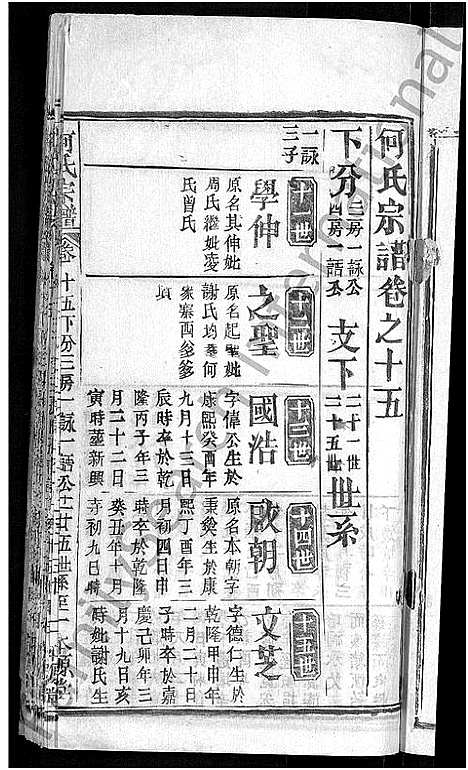 何氏宗譜卷之十五
下分三房一詠公四房一語公支下二十一世二十五世世系
一詠三子
十一世
學伸
原名其伸妣
周氏繼妣凌
氏曾氏
十二世
之聖
原名起聖妣
謝氏均塟何
家寨西爹爹
十三世
國浩
字偉公生於
康熙癸酉年
九月十三日
辰時卒於乾
隆丙子年三
月二十二日
寅時塟新興
十四世
啟朝
原名本朝字
秉鑁生於康
熙丁酉年三
月初四日申
時卒於乾隆
癸丑年十月
初九日時
十五世
文芝
字德仁生於
乾隆甲申年
二月二十日
子時卒於嘉
慶己卯年三
月十九日亥
時妣謝氏生
何氏宗譜
卷十五下分三房一詠一語公